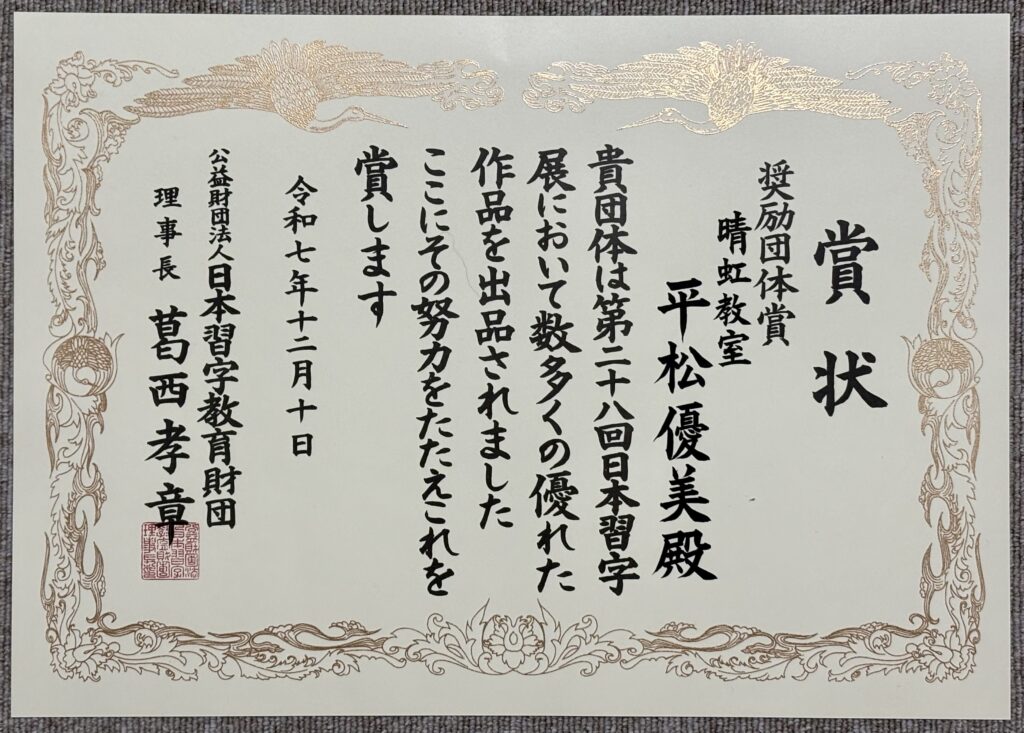 賞状
奨励団体賞
晴虹教室
平松優美殿
貴団体は第二十八回日本習字
展において数多くの優れた
作品を出品されました
ここにその努力をたたえこれを
賞します
令和七年十二月十日
公益財団法人日本習字教育財団
理事長 葛西孝章